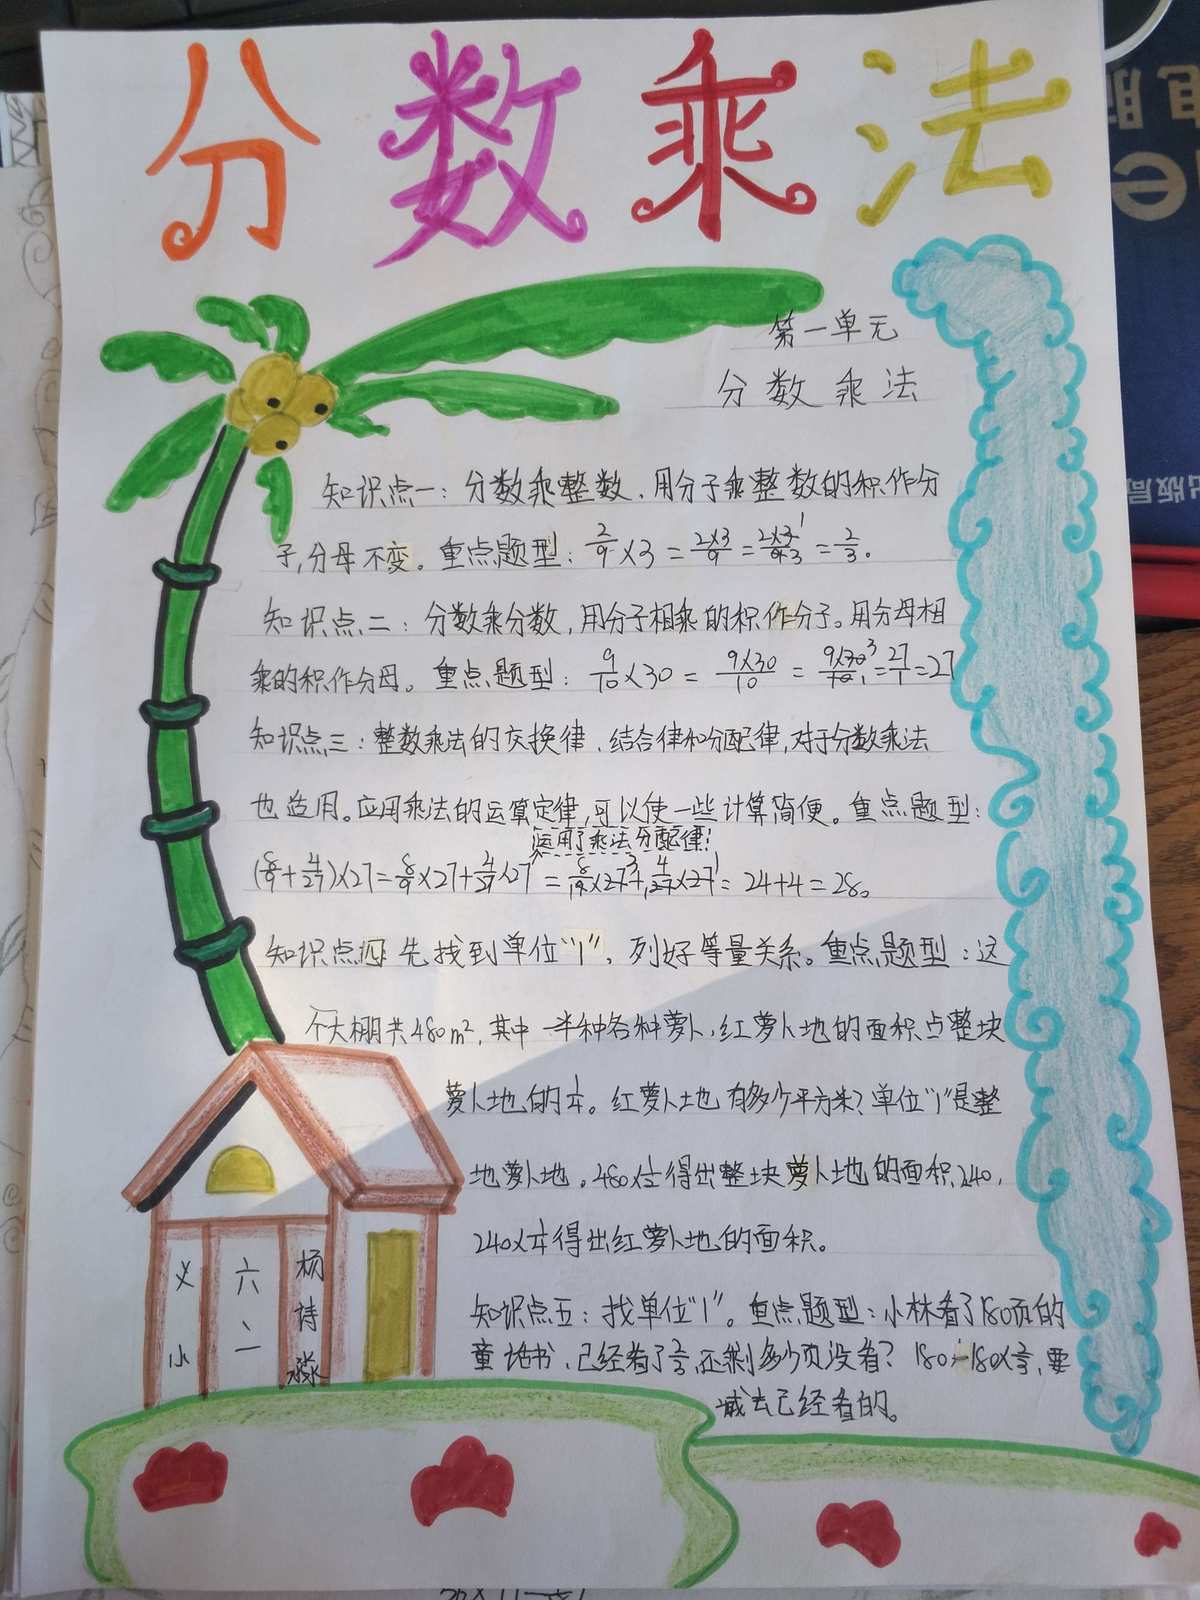 分数乘法
第一单元
分数乘法
知识点一：分数乘整数，用分子乘整数的积作分
子，分母不变。重点题型：2/9×3=2×3/9=2×3¹/9₃=2/3。
知识点二：分数乘分数，用分子相乘的积作分子。用分母相
乘的积作分母。重点题型：9/10×30=9×30/10=9×30³/10₁=27/1=27
知识点三：整数乘法的交换律、结合律和分配律，对于分数乘法
也适用。应用乘法的运算定律，可以使一些计算简便。重点题型：
运用了乘法分配律！
(8/9+4/27)×27=8/9×27+4/27×27=8/₁9×27³+4/₁27×27¹=24+4=28。
知识点四 先找到单位“1”，列好等量关系。重点题型：这
个大棚共480m²，其中一半种各种萝卜，红萝卜地的面积占整块
萝卜地的1/4。红萝卜地有多少平方米？单位“1”是整
地萝卜地。480×1/2得出整块萝卜地的面积240，
240×1/4得出红萝卜地的面积。
知识点五：找单位“1”。重点题型：小林看了180页的
童话书，已经看了2/3，还剩多少页没看？180-180×2/3，要
减去已经看的。
义小
六二
杨诗
电脑
出版局